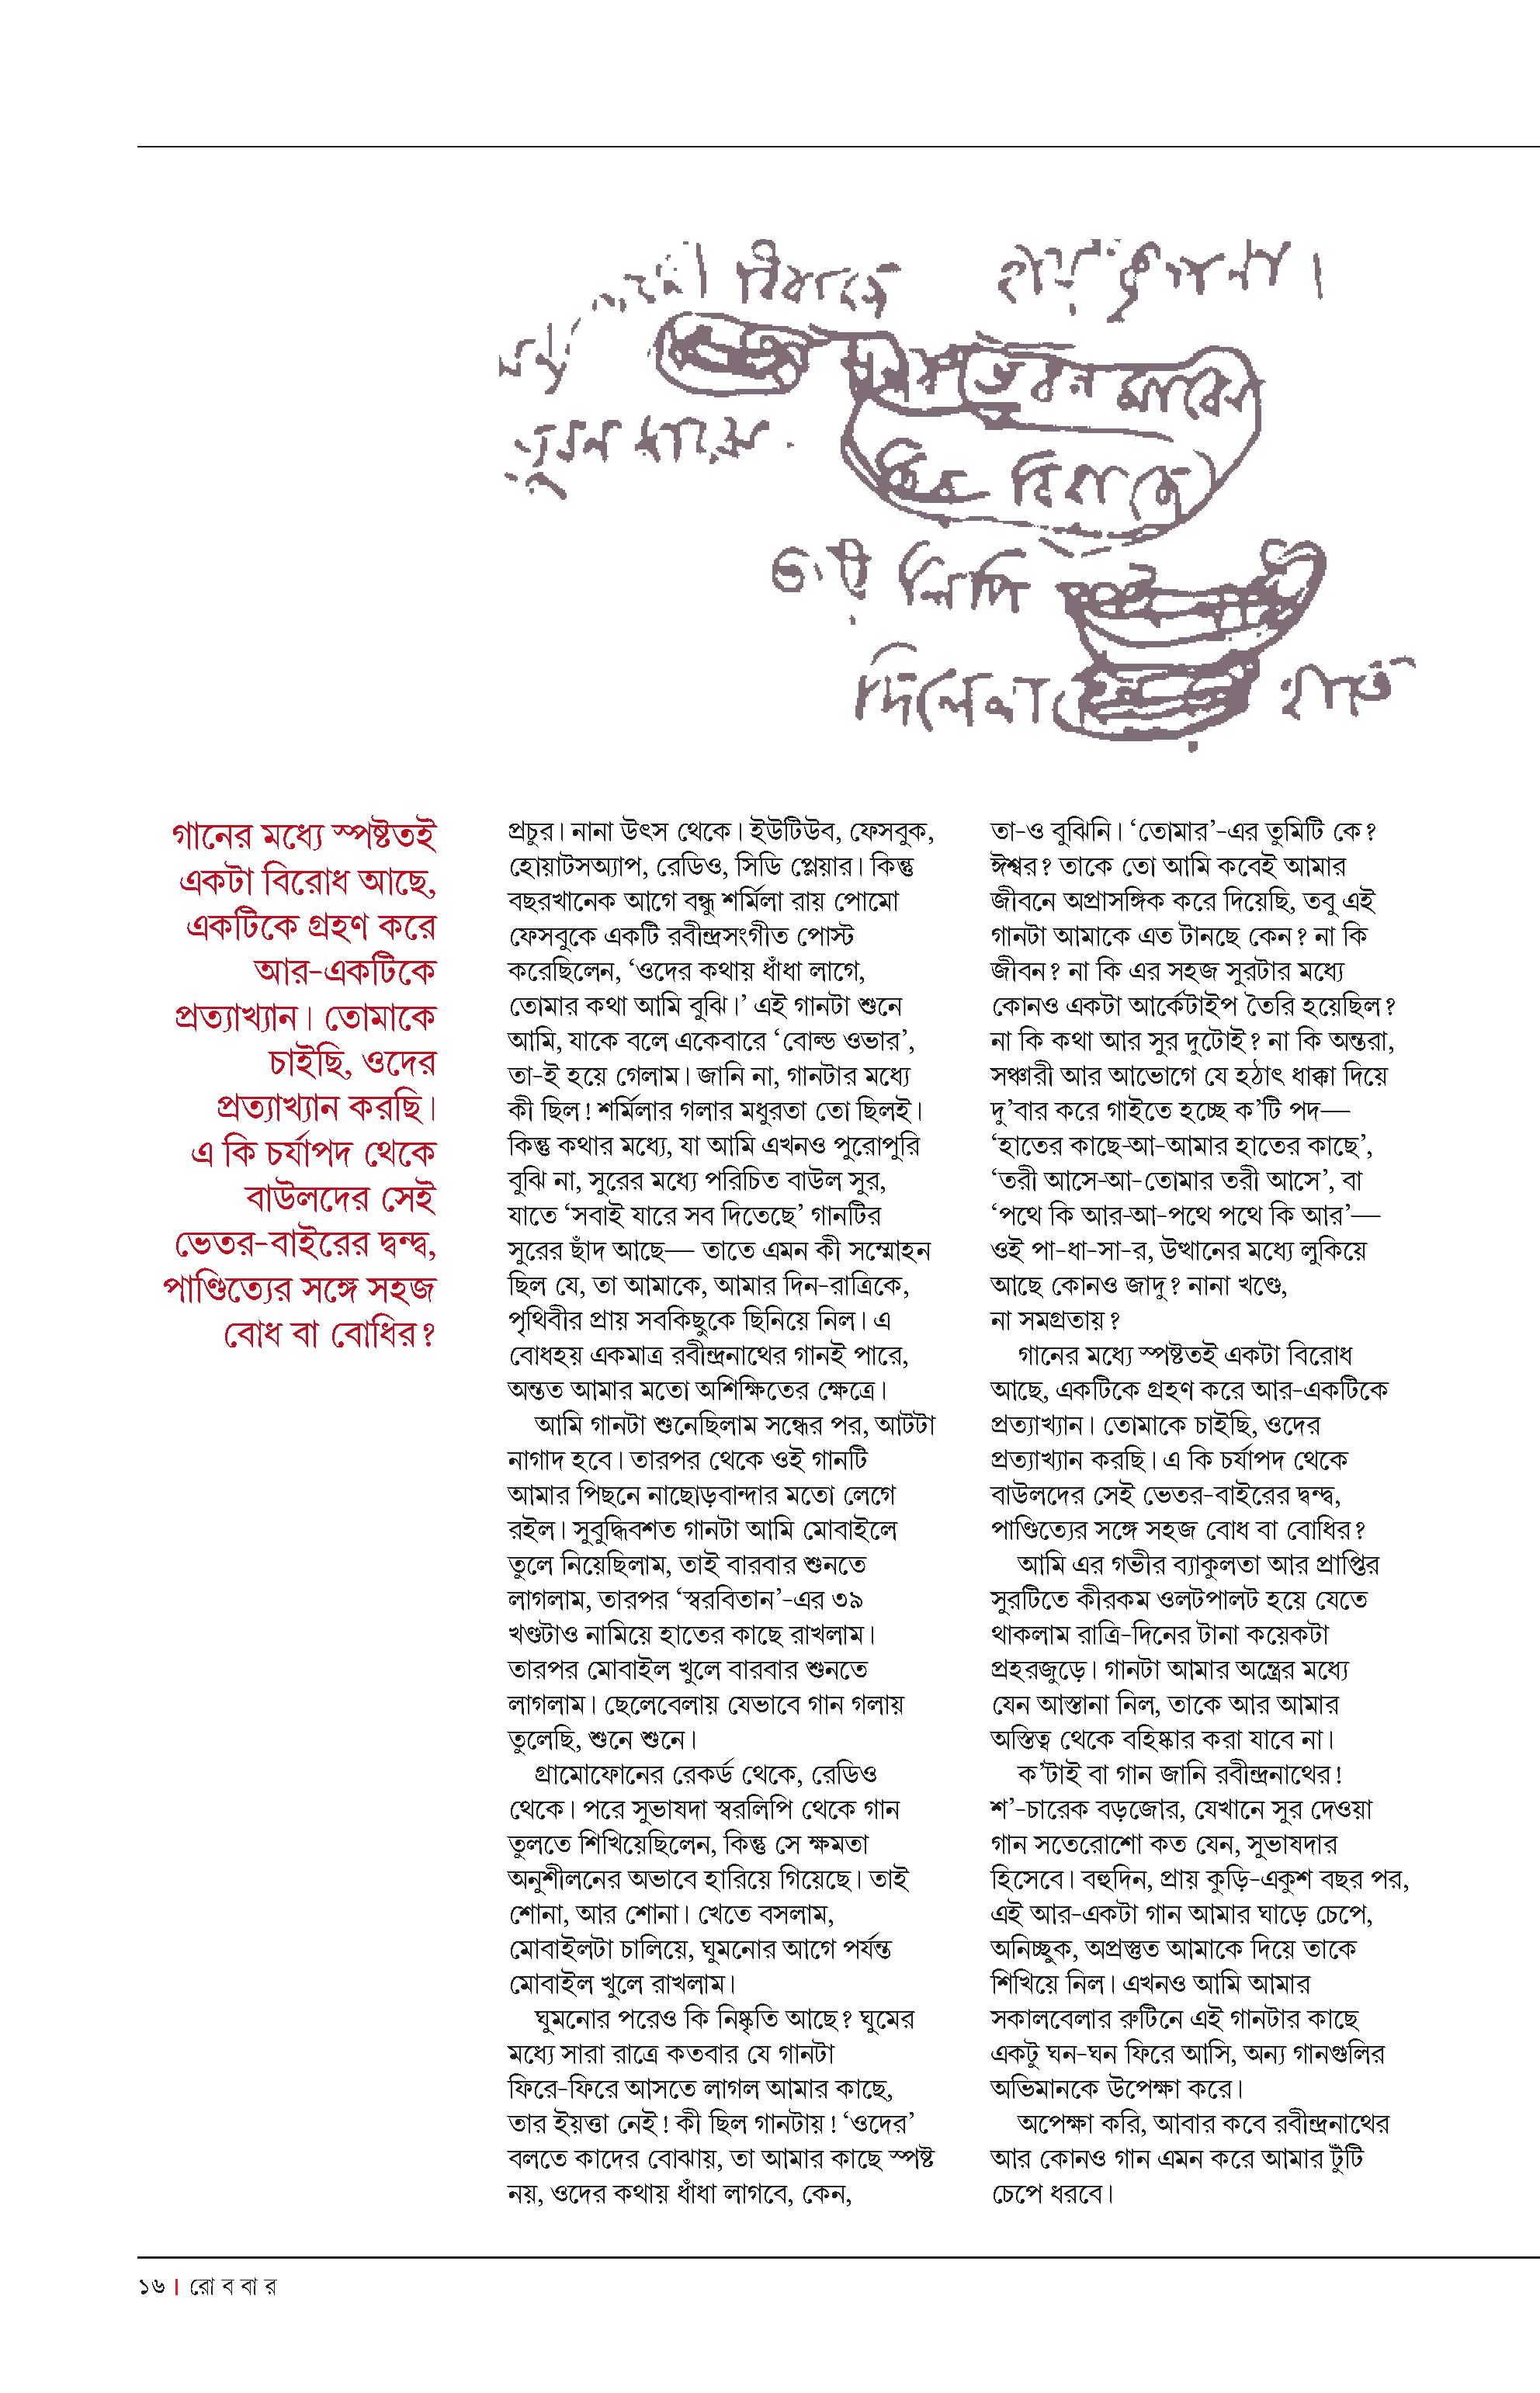 গানের মধ্যে স্পষ্টতই
একটা বিরোধ আছে,
একটিকে গ্রহণ করে
আর-একটিকে
প্রত্যাখ্যান। তোমাকে
চাইছি, ওদের
প্রত্যাখ্যান করছি।
এ কি চর্যাপদ থেকে
বাউলদের সেই
ভেতর-বাইরের দ্বন্দ্ব,
পাণ্ডিত্যের সঙ্গে সহজ
বোধ বা বোধির?
প্রচুর। নানা উৎস থেকে। ইউটিউব, ফেসবুক,
হোয়াটসঅ্যাপ, রেডিও, সিডি প্লেয়ার। কিন্তু
বছরখানেক আগে বন্ধু শর্মিলা রায় পোমো
ফেসবুকে একটি রবীন্দ্রসংগীত পোস্ট
করেছিলেন, ‘ওদের কথায় ধাঁধা লাগে,
তোমার কথা আমি বুঝি।’ এই গানটা শুনে
আমি, যাকে বলে একেবারে ‘বোল্ড ওভার’,
তা-ই হয়ে গেলাম। জানি না, গানটার মধ্যে
কী ছিল! শর্মিলার গলার মধুরতা তো ছিলই।
কিন্তু কথার মধ্যে, যা আমি এখনও পুরোপুরি
বুঝি না, সুরের মধ্যে পরিচিত বাউল সুর,
যাতে ‘সবাই যারে সব দিতেছে’ গানটির
সুরের ছাঁদ আছে— তাতে এমন কী সম্মোহন
ছিল যে, তা আমাকে, আমার দিন-রাত্রিকে,
পৃথিবীর প্রায় সবকিছুকে ছিনিয়ে নিল। এ
বোধহয় একমাত্র রবীন্দ্রনাথের গানই পারে,
অন্তত আমার মতো অশিক্ষিতের ক্ষেত্রে।
আমি গানটা শুনেছিলাম সন্ধের পর, আটটা
নাগাদ হবে। তারপর থেকে ওই গানটি
আমার পিছনে নাছোড়বান্দার মতো লেগে
রইল। সুবুদ্ধিবশত গানটা আমি মোবাইলে
তুলে নিয়েছিলাম, তাই বারবার শুনতে
লাগলাম, তারপর ‘স্বরবিতান’-এর ৩৯
খণ্ডটাও নামিয়ে হাতের কাছে রাখলাম।
তারপর মোবাইল খুলে বারবার শুনতে
লাগলাম। ছেলেবেলায় যেভাবে গান গলায়
তুলেছি, শুনে শুনে।
গ্রামোফোনের রেকর্ড থেকে, রেডিও
থেকে। পরে সুভাষদা স্বরলিপি থেকে গান
তুলতে শিখিয়েছিলেন, কিন্তু সে ক্ষমতা
অনুশীলনের অভাবে হারিয়ে গিয়েছে। তাই
শোনা, আর শোনা। খেতে বসলাম,
মোবাইলটা চালিয়ে, ঘুমনোর আগে পর্যন্ত
মোবাইল খুলে রাখলাম।
ঘুমনোর পরেও কি নিষ্কৃতি আছে? ঘুমের
মধ্যে সারা রাত্রে কতবার যে গানটা
ফিরে-ফিরে আসতে লাগল আমার কাছে,
তার ইয়ত্তা নেই! কী ছিল গানটায়! ‘ওদের’
বলতে কাদের বোঝায়, তা আমার কাছে স্পষ্ট
নয়, ওদের কথায় ধাঁধা লাগবে, কেন,
তা-ও বুঝিনি। ‘তোমার’-এর তুমিটি কে?
ঈশ্বর? তাকে তো আমি কবেই আমার
জীবনে অপ্রাসঙ্গিক করে দিয়েছি, তবু এই
গানটা আমাকে এত টানছে কেন? না কি
জীবন? না কি এর সহজ সুরটার মধ্যে
কোনও একটা আর্কেটাইপ তৈরি হয়েছিল?
না কি কথা আর সুর দুটোই? না কি অন্তরা,
সঞ্চারী আর আভোগে যে হঠাৎ ধাক্কা দিয়ে
দু’বার করে গাইতে হচ্ছে ক’টি পদ—
‘হাতের কাছে-আ-আমার হাতের কাছে’,
‘তরী আসে-আ-তোমার তরী আসে’, বা
‘পথে কি আর-আ-পথে পথে কি আর’—
ওই পা-ধা-সা-র, উত্থানের মধ্যে লুকিয়ে
আছে কোনও জাদু? নানা খণ্ডে,
না সমগ্রতায়?
গানের মধ্যে স্পষ্টতই একটা বিরোধ
আছে, একটিকে গ্রহণ করে আর-একটিকে
প্রত্যাখ্যান। তোমাকে চাইছি, ওদের
প্রত্যাখ্যান করছি। এ কি চর্যাপদ থেকে
বাউলদের সেই ভেতর-বাইরের দ্বন্দ্ব,
পাণ্ডিত্যের সঙ্গে সহজ বোধ বা বোধির?
আমি এর গভীর ব্যাকুলতা আর প্রাপ্তির
সুরটিতে কীরকম ওলটপালট হয়ে যেতে
থাকলাম রাত্রি-দিনের টানা কয়েকটা
প্রহরজুড়ে। গানটা আমার অন্ত্রের মধ্যে
যেন আস্তানা নিল, তাকে আর আমার
অস্তিত্ব থেকে বহিষ্কার করা যাবে না।
ক’টাই বা গান জানি রবীন্দ্রনাথের!
শ’-চারেক বড়জোর, যেখানে সুর দেওয়া
গান সতেরোশো কত যেন, সুভাষদার
হিসেবে। বহুদিন, প্রায় কুড়ি-একুশ বছর পর,
এই আর-একটা গান আমার ঘাড়ে চেপে,
অনিচ্ছুক, অপ্রস্তুত আমাকে দিয়ে তাকে
শিখিয়ে নিল। এখনও আমি আমার
সকালবেলার রুটিনে এই গানটার কাছে
একটু ঘন-ঘন ফিরে আসি, অন্য গানগুলির
অভিমানকে উপেক্ষা করে।
অপেক্ষা করি, আবার কবে রবীন্দ্রনাথের
আর কোনও গান এমন করে আমার টুঁটি
চেপে ধরবে।
১৬ । রো ব বা র